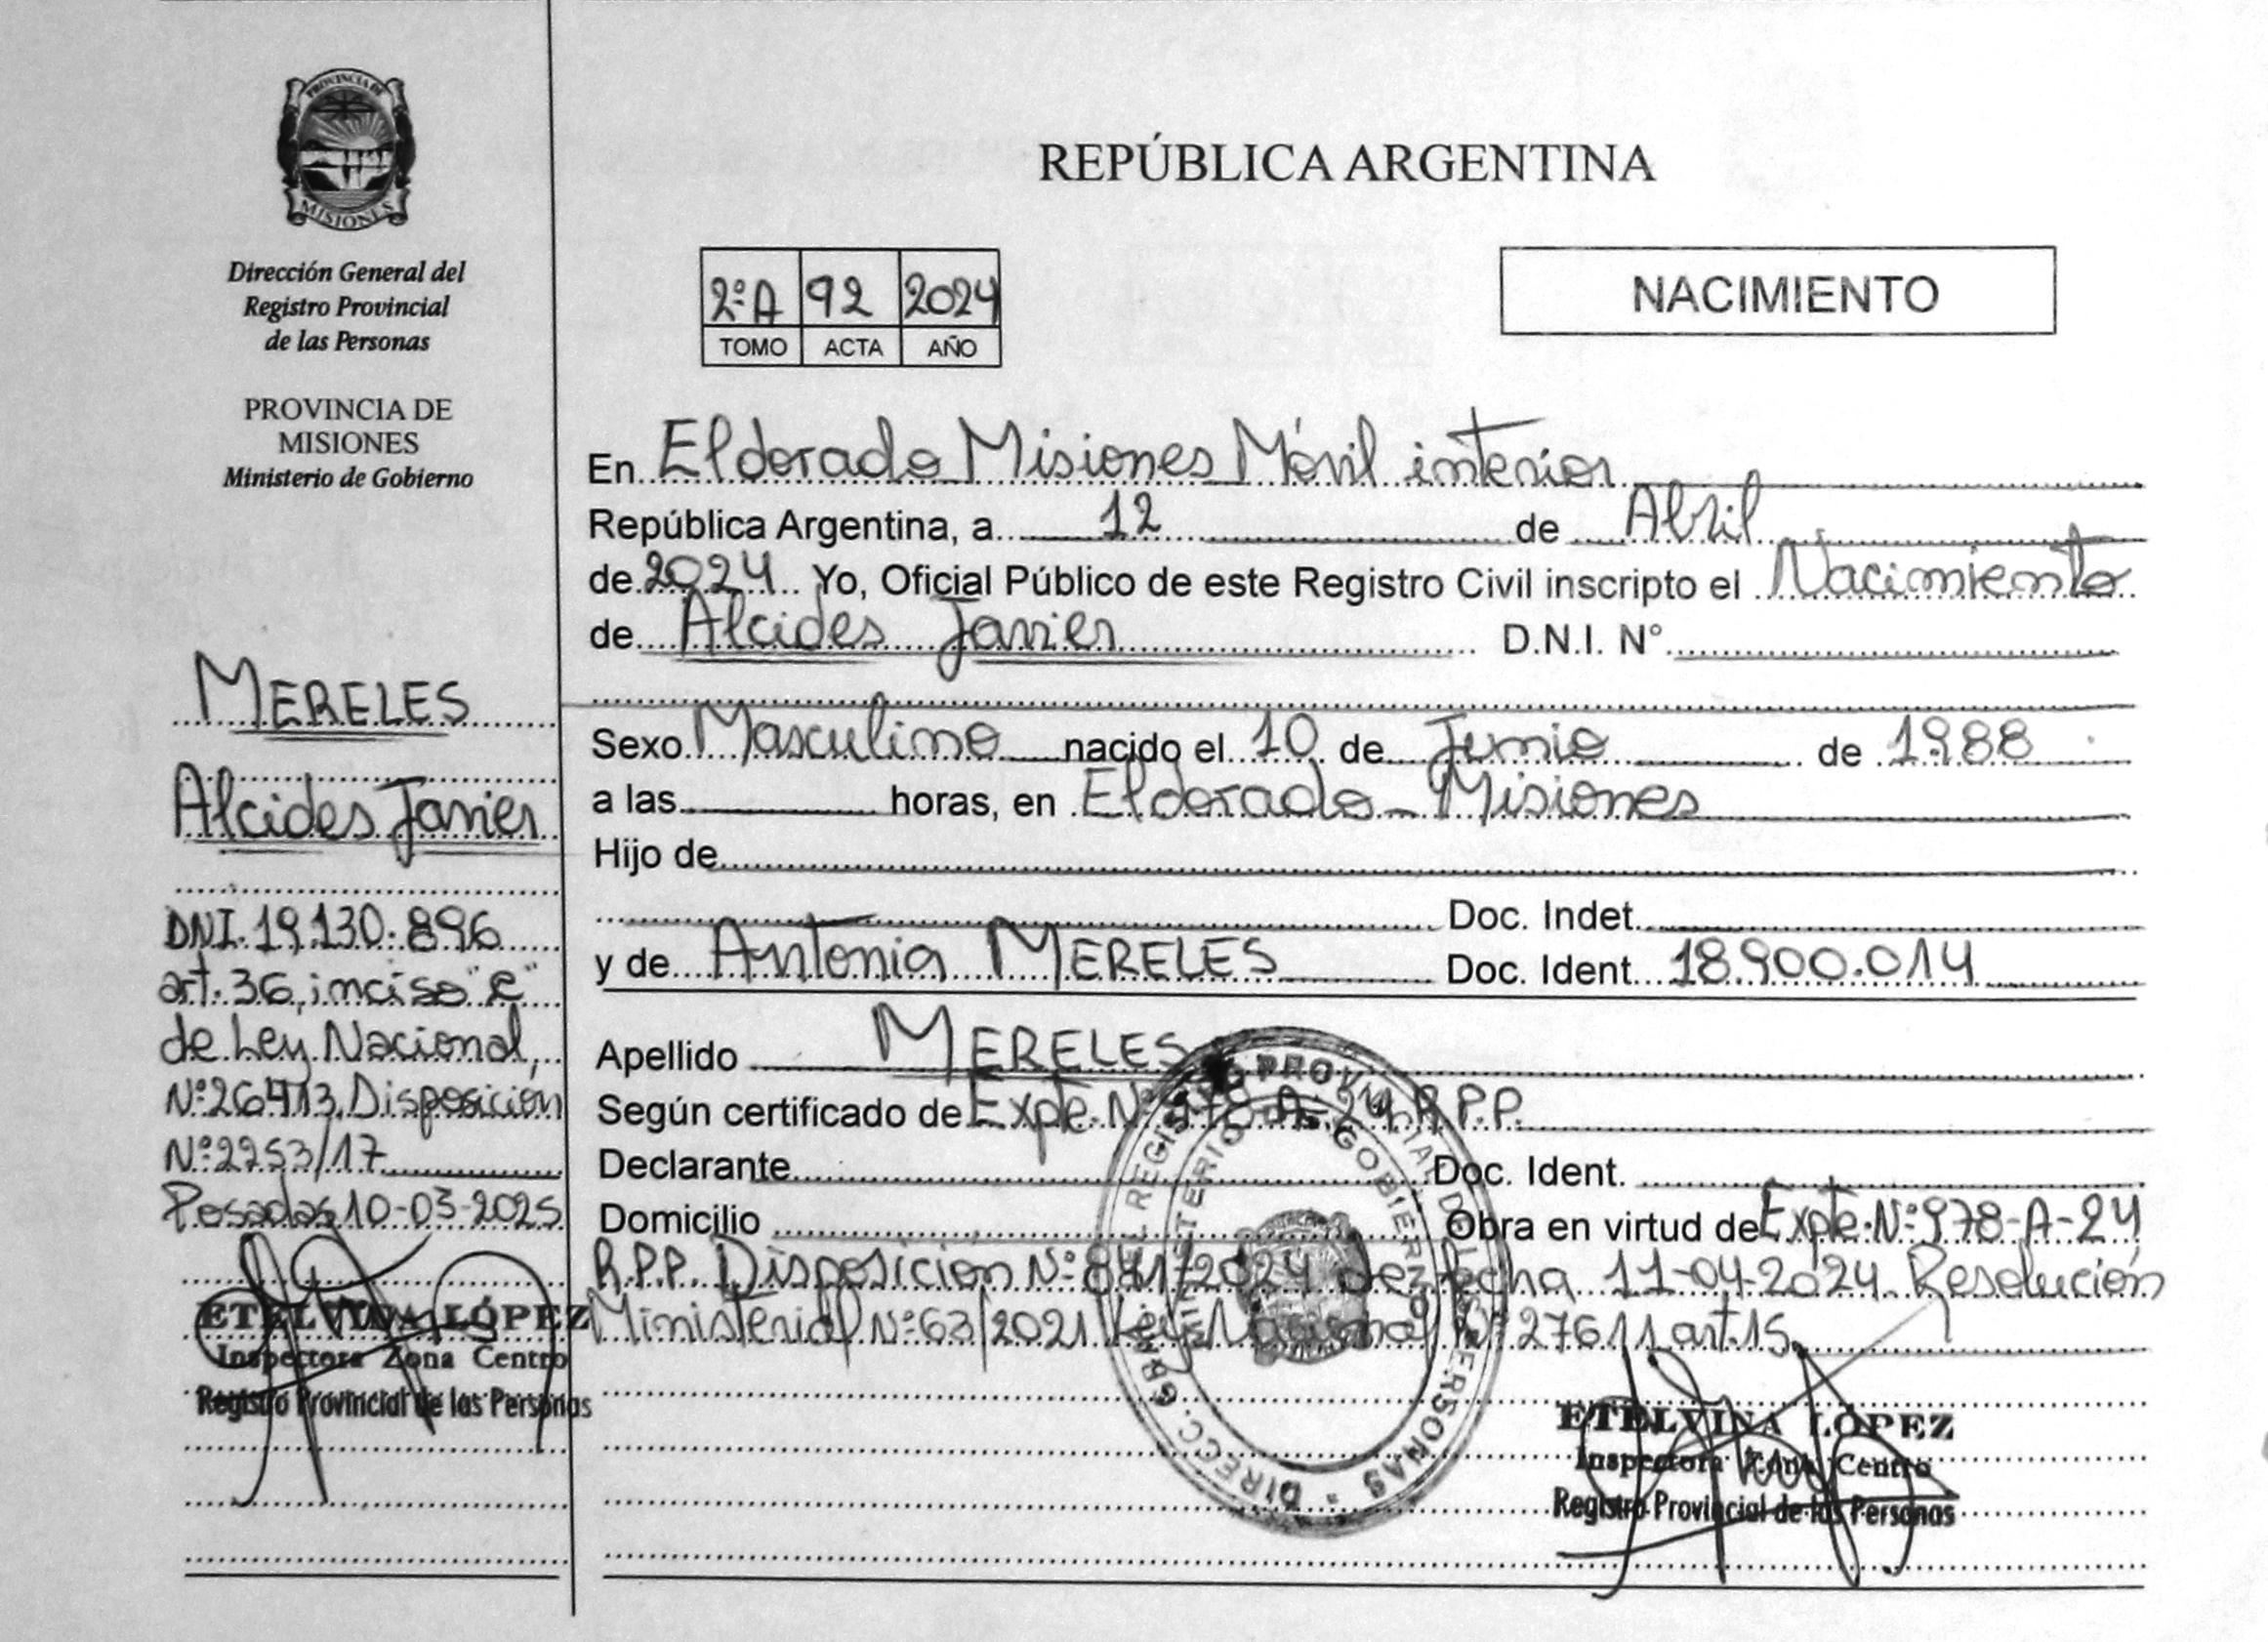 PROVINCIA DE
MISIONES
Dirección General del
Registro Provincial
de las Personas
PROVINCIA DE
MISIONES
Ministerio de Gobierno
MERELES
Alcides Javier
DNI. 19.130.896
art. 36, inciso "C"
de Ley Nacional,
Nº 26413, Disposicion
Nº 2253/17
Posadas 10-03-2025
ETELVINA LÓPEZ
Inspectora Zona Centro
Registro Provincial de las Personas
REPÚBLICA ARGENTINA
2º A 92 2024
TOMO ACTA AÑO
NACIMIENTO
En Eldorado Misiones Móvil interior
República Argentina, a 12 de Abril
de 2024 Yo, Oficial Público de este Registro Civil inscripto el Nacimiento
de Alcides Javier D.N.I. N°
Sexo Masculino nacido el 10 de Junio de 1988
a las horas, en Eldorado - Misiones
Hijo de
Doc. Indet.
y de Antonia MERELES Doc. Ident. 18.900.014
Apellido MERELES
Según certificado de Expte. Nº 978-A-24 R.P.P.
Declarante Doc. Ident.
Domicilio Obra en virtud de Expte. Nº 978-A-24
R.P.P. Disposicion Nº 841/2024 de fecha 11-04-2024 Resolución
Ministerial Nº 63/2021 Ley Nacional Nº 27611 art. 15
DIRECC. GRAL. DEL REGISTRO PROVINCIAL DE LAS PERSONAS
MINISTERIO DE GOBIERNO
ETELVINA LÓPEZ
Inspectora Zona Centro
Registro Provincial de las Personas